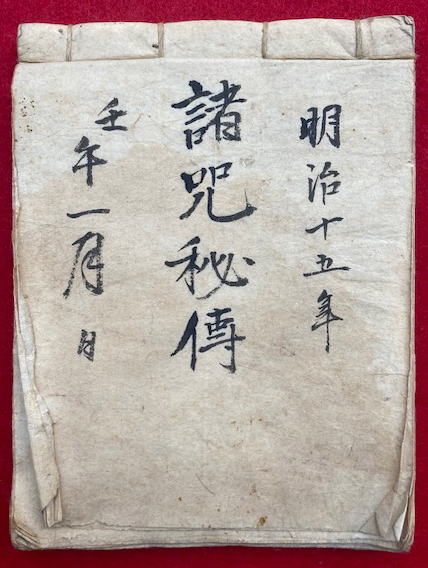 明治十五年
諸咒秘傳
壬午一月日